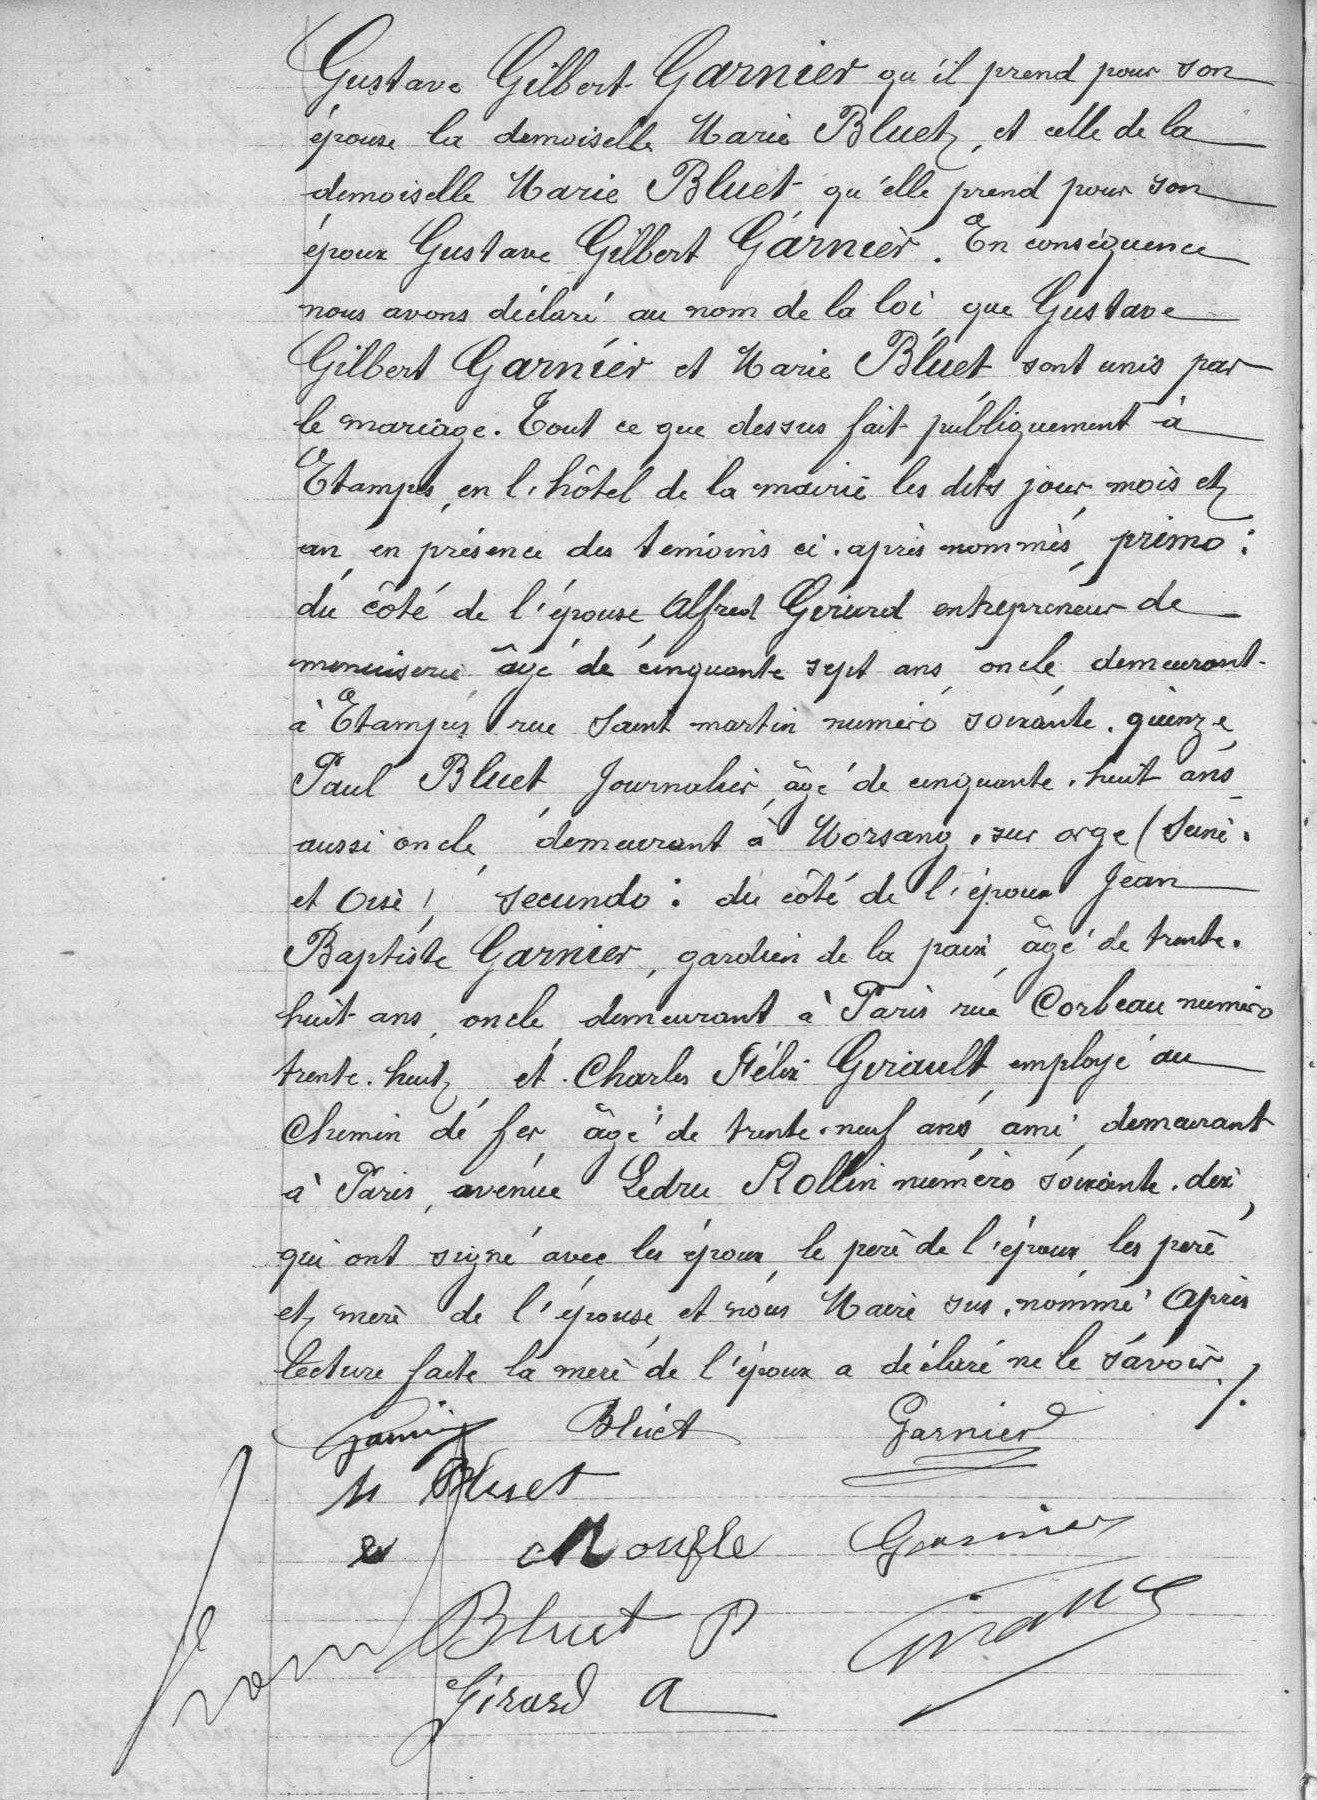 Gustave Gilbert Garnier qu'il prend pour son
épouse la demoiselle Marie Bluet, et celle de la
demoiselle Marie Bluet qu'elle prend pour son
époux Gustave Gilbert Garnier. En conséquence
nous avons déclaré au nom de la loi que Gustave
Gilbert Garnier et Marie Bluet sont unis par
le mariage. Tout ce que dessus fait publiquement à
Etampes, en l'hôtel de la mairie les dits jour, mois et
an, en présence des temoins ci-après nommés, primo :
du côté de l'épouse Alfred Girard entrepreneur de
menuiserie âgé de cinquante sept ans, oncle, demeurant
à Etampes rue Saint martin numéro soixante-quinze,
Paul Bluet, Journalier, âgé de cinquante-huit ans
aussi oncle, demeurant à Morsang-sur-orge (Seine-
et Oise), secundo : du côté de l'époux Jean
Baptiste Garnier, gardien de la paix, âgé de trente-
huit ans, oncle, demeurant à Paris rue Corbeau numéro
trente-huit, et Charles Félix Girault, employé au
Chemin de fer, âgé de trente-neuf ans, ami, demeurant
à Paris, avenue Ledru Rollin numéro soixante-dix,
qui ont signé avec les époux, le père de l'époux, les père
et mère de l'épouse et nous Maire sus-nommé Après
lecture faite la mère de l'époux a déclaré ne le savoir ./.
Garnier Bluet Garnier
M Bluet
Moufle Garnier
Bluet P
Girard A